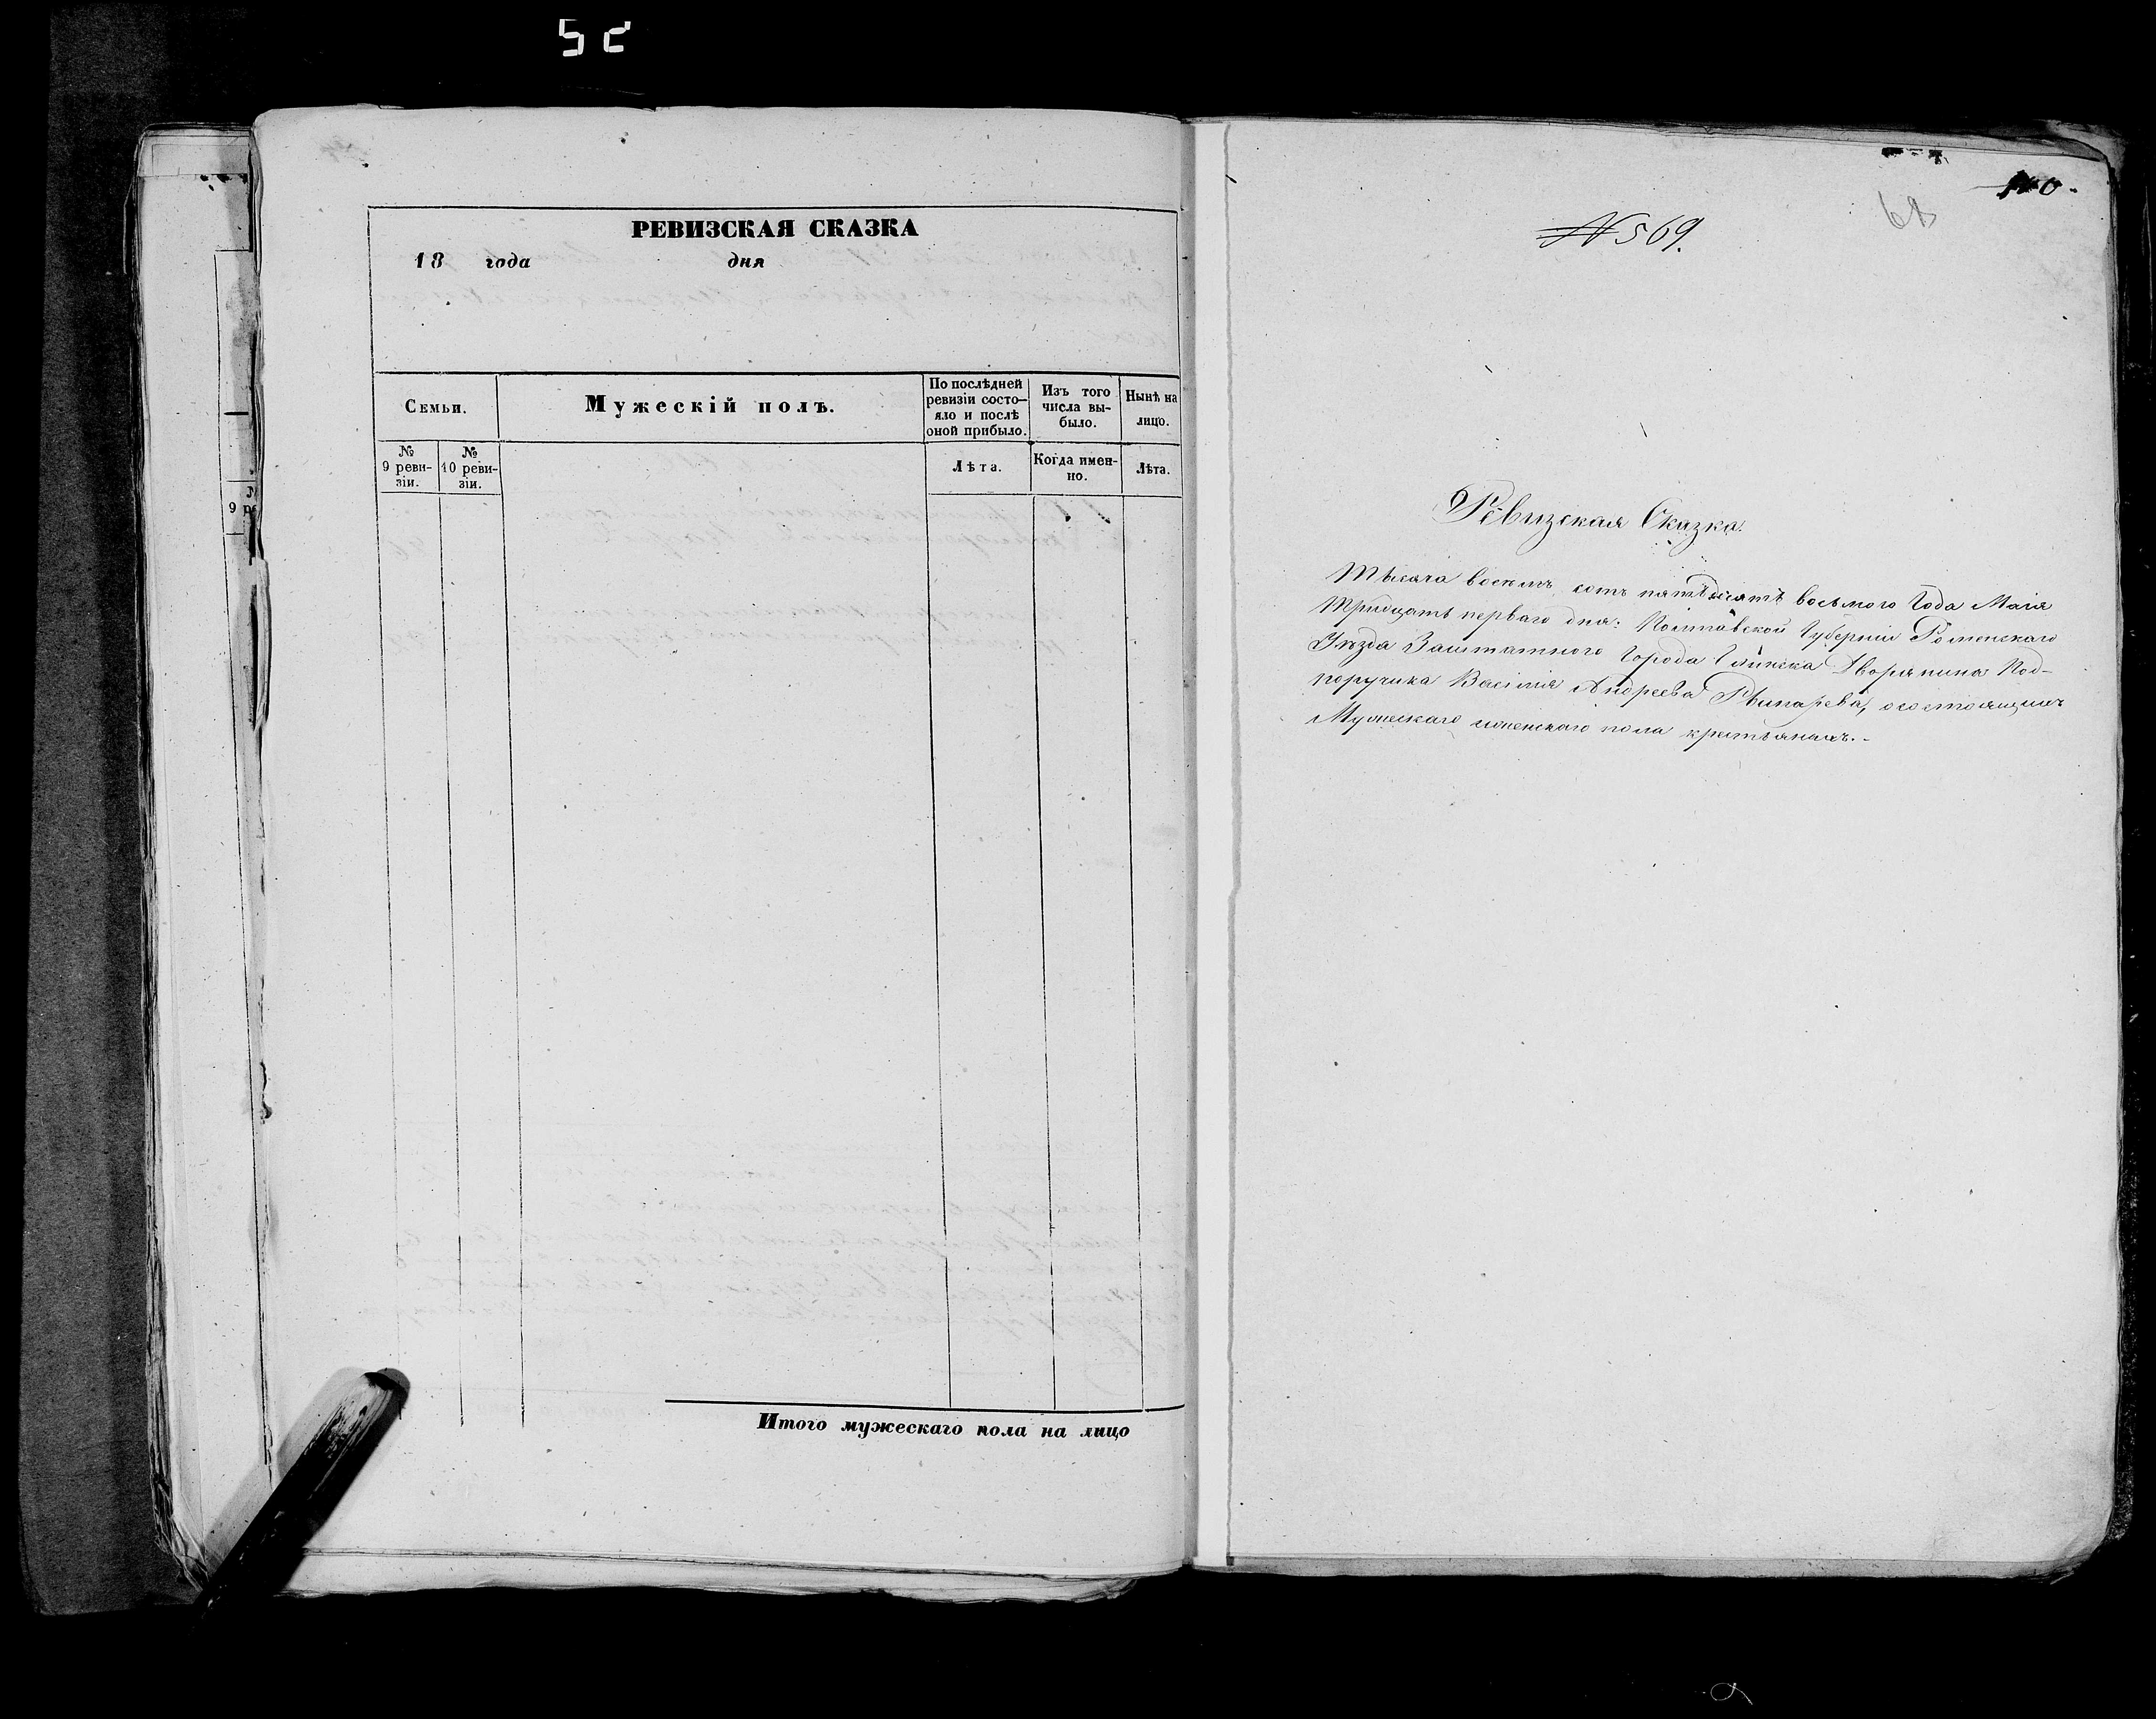 52
РЕВИЗСКАЯ СКАЗКА
18 года дня
Семьи.
Мужескій полъ.
По послѣдней ревизіи состо-
яло и послѣ
оной прибыло.
Изъ того
числа вы-
было.
Нынѣ на
лицо.
№
9 реви-
зіи.
№
10 реви-
зіи.
Лѣта.
Когда имен-
но.
Лѣта.
Итого мужескаго пола на лицо
9 ре
68
№ 569.
Ревизская Сказка.
Тысяча восемь сотъ пятьдесятъ восьмого Года Маія
Тридцать перваго дня: Полтавской Губерніи Роменскаго
Уѣзда Заштатного Города Глинска Дворянина Под-
поручика Василія Андреева состоящихъ
Мужескаго иженскаго пола крестьянахъ.-